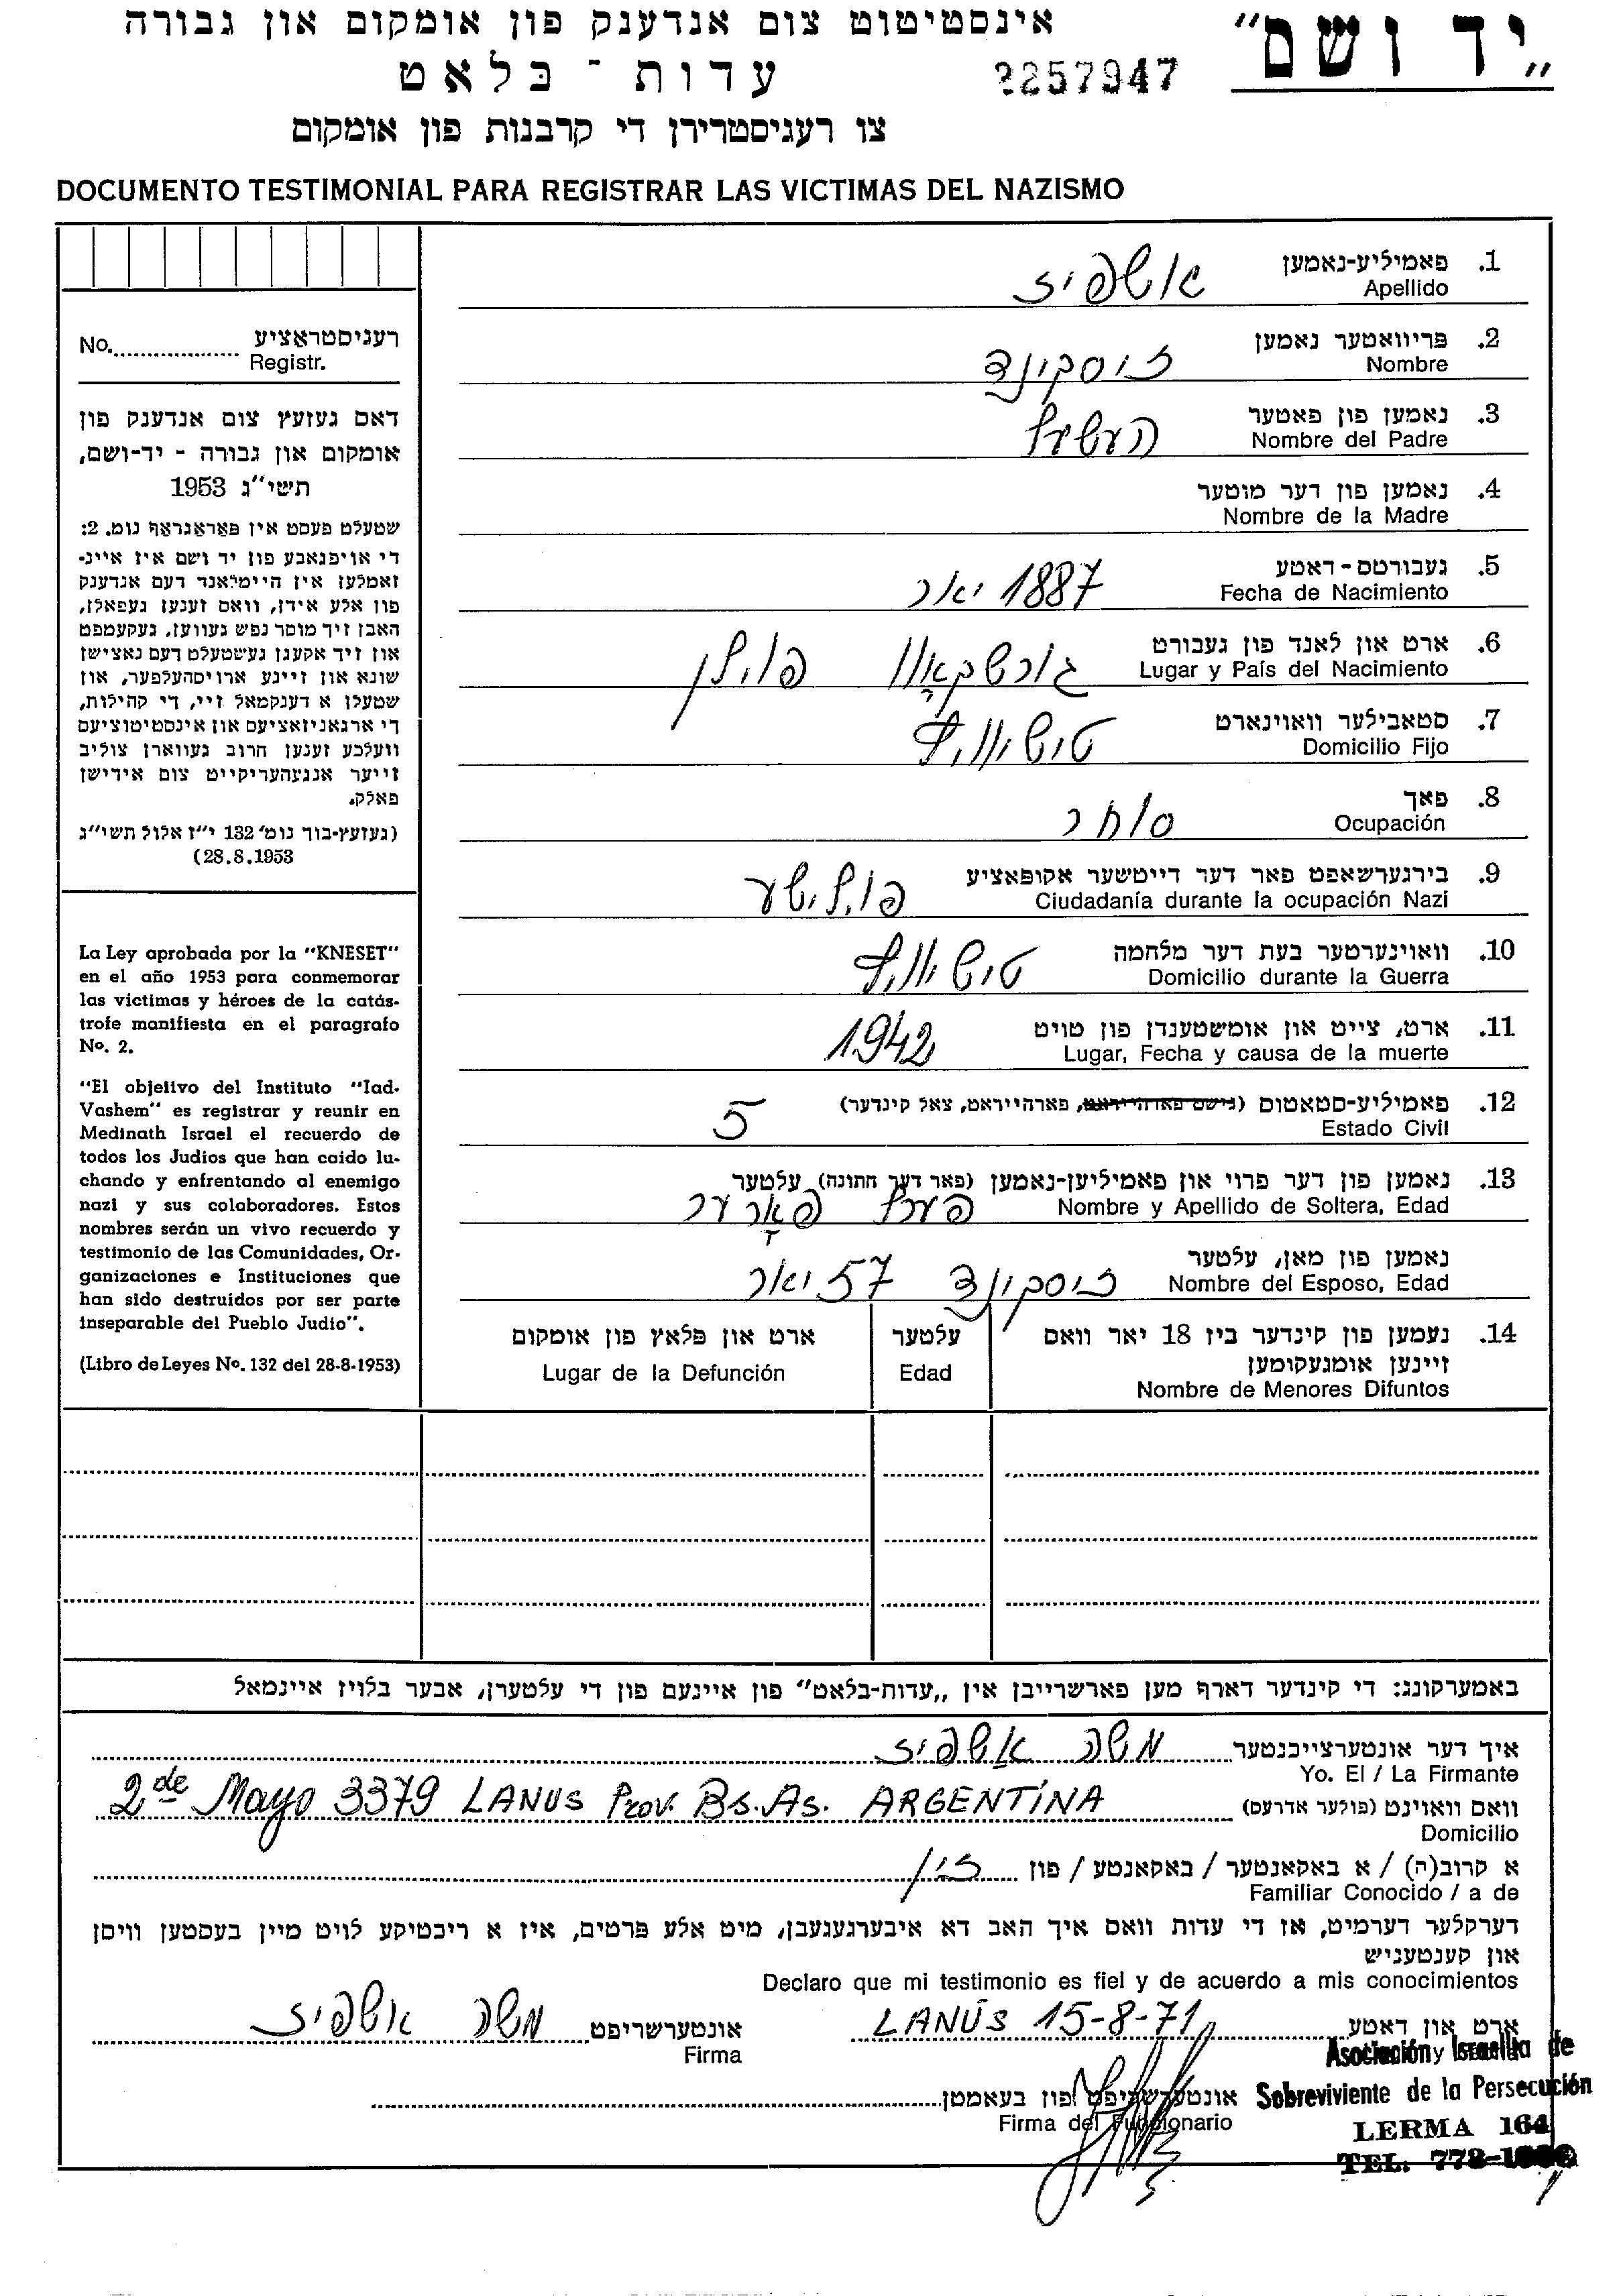 „יד ושם”
אינסטיטוט צום אנדענק פון אומקום און גבורה
עדות - בלאט
2257947
צו רעגיסטרירן די קרבנות פון אומקום
DOCUMENTO TESTIMONIAL PARA REGISTRAR LAS VICTIMAS DEL NAZISMO
1. פאמיליע-נאמען
Apellido
אשפיז
2. פריוואטער נאמען
Nombre
זוסקינד
3. נאמען פון פאטער
Nombre del Padre
העשיל
4. נאמען פון דער מוטער
Nombre de la Madre
5. געבורטס-דאטע
Fecha de Nacimiento
1887 יאר
6. ארט און לאנד פון געבורט
Lugar y País del Nacimiento
גורשקאוו פוילן
7. סטאבילער וואוינארט
Domicilio Fijo
טישוויץ
8. פאך
Ocupación
סוחר
9. בירגערשאפט פאר דער דייטשער אקופאציע
Ciudadanía durante la ocupación Nazi
פוילישע
10. וואוינערטער בעת דער מלחמה
Domicilio durante la Guerra
טישוויץ
11. ארט, צייט און אומשטענדן פון טויט
Lugar, Fecha y causa de la muerte
1942
12. פאמיליע-סטאטוס (נישט פארהייראט, פארהייראט, צאל קינדער)
Estado Civil
5
13. נאמען פון דער פרוי און פאמיליען-נאמען (פאר דער חתונה) עלטער
Nombre y Apellido de Soltera, Edad
פערל
נאמען פון מאן, עלטער
Nombre del Esposo, Edad
זוסקינד 57 יאר
14. נעמען פון קינדער ביז 18 יאר וואס
זיינען אומגעקומען
Nombre de Menores Difuntos
עלטער
Edad
ארט און פלאץ פון אומקום
Lugar de la Defunción
רעגיסטראציע
No. Registr.
דאס געזעץ צום אנדענק פון
אומקום און גבורה - יד-ושם,
תשי״ג 1953
שטעלט פעסט אין פאראגראף נומ. 2:
די אויפגאבע פון יד ושם איז איינ-
זאמלען אין היימלאנד דעם אנדענק
פון אלע אידן, וואס זענען געפאלן,
האבן זיך מוסר נפש געווען, געקעמפט
און זיך אקעגן געשטעלט דעם נאצישן
שונא און זיינע ארויסהעלפער, און
שטעלן א דענקמאל זיי, די קהילות,
די ארגאניזאציעס און אינסטיטוציעס
וועלכע זענען חרוב געווארן צוליב
זייער אנגעהעריקייט צום אידישן
פאלק.
(געזעץ-בוך נומ׳ 132 י״ז אלול תשי״ג
28.8.1953)
La Ley aprobada por la "KNESET"
en el año 1953 para conmemorar
las victimas y héroes de la catás-
trofe manifiesta en el paragrafo
No. 2.
"El objetivo del Instituto "Iad-
Vashem" es registrar y reunir en
Medinath Israel el recuerdo de
todos los Judios que han caido lu-
chando y enfrentando al enemigo
nazi y sus colaboradores. Estos
nombres serán un vivo recuerdo y
testimonio de las Comunidades, Or-
ganizaciones e Instituciones que
han sido destruidos por ser parte
inseparable del Pueblo Judio".
(Libro de Leyes No. 132 del 28-8-1953)
באמערקונג: די קינדער דארף מען פארשרייבן אין „עדות-בלאט” פון איינעם פון די עלטערן, אבער בלויז איינמאל
איך דער אונטערצייכנטער משה אשפיז
Yo. El / La Firmante
וואס וואוינט (פולער אדרעס) 2 de Mayo 3379 LANUS Prov. Bs. As. ARGENTINA
Domicilio
א קרוב(ה) / א באקאנטער / באקאנטע / פון זון
Familiar Conocido / a de
דערקלער דערמיט, אז די עדות וואס איך האב דא איבערגעגעבן, מיט אלע פרטים, איז א ריכטיקע לויט מיין בעסטען וויסן
און קענטעניש
Declaro que mi testimonio es fiel y de acuerdo a mis conocimientos
ארט און דאטע LANÚS 15-8-71
אונטערשריפט משה אשפיז
Firma
אונטערשריפט פון בעאמטן
Firma del Funcionario
Asociación Israelita de
Sobreviviente de la Persecución
LERMA 164
TEL. 772-